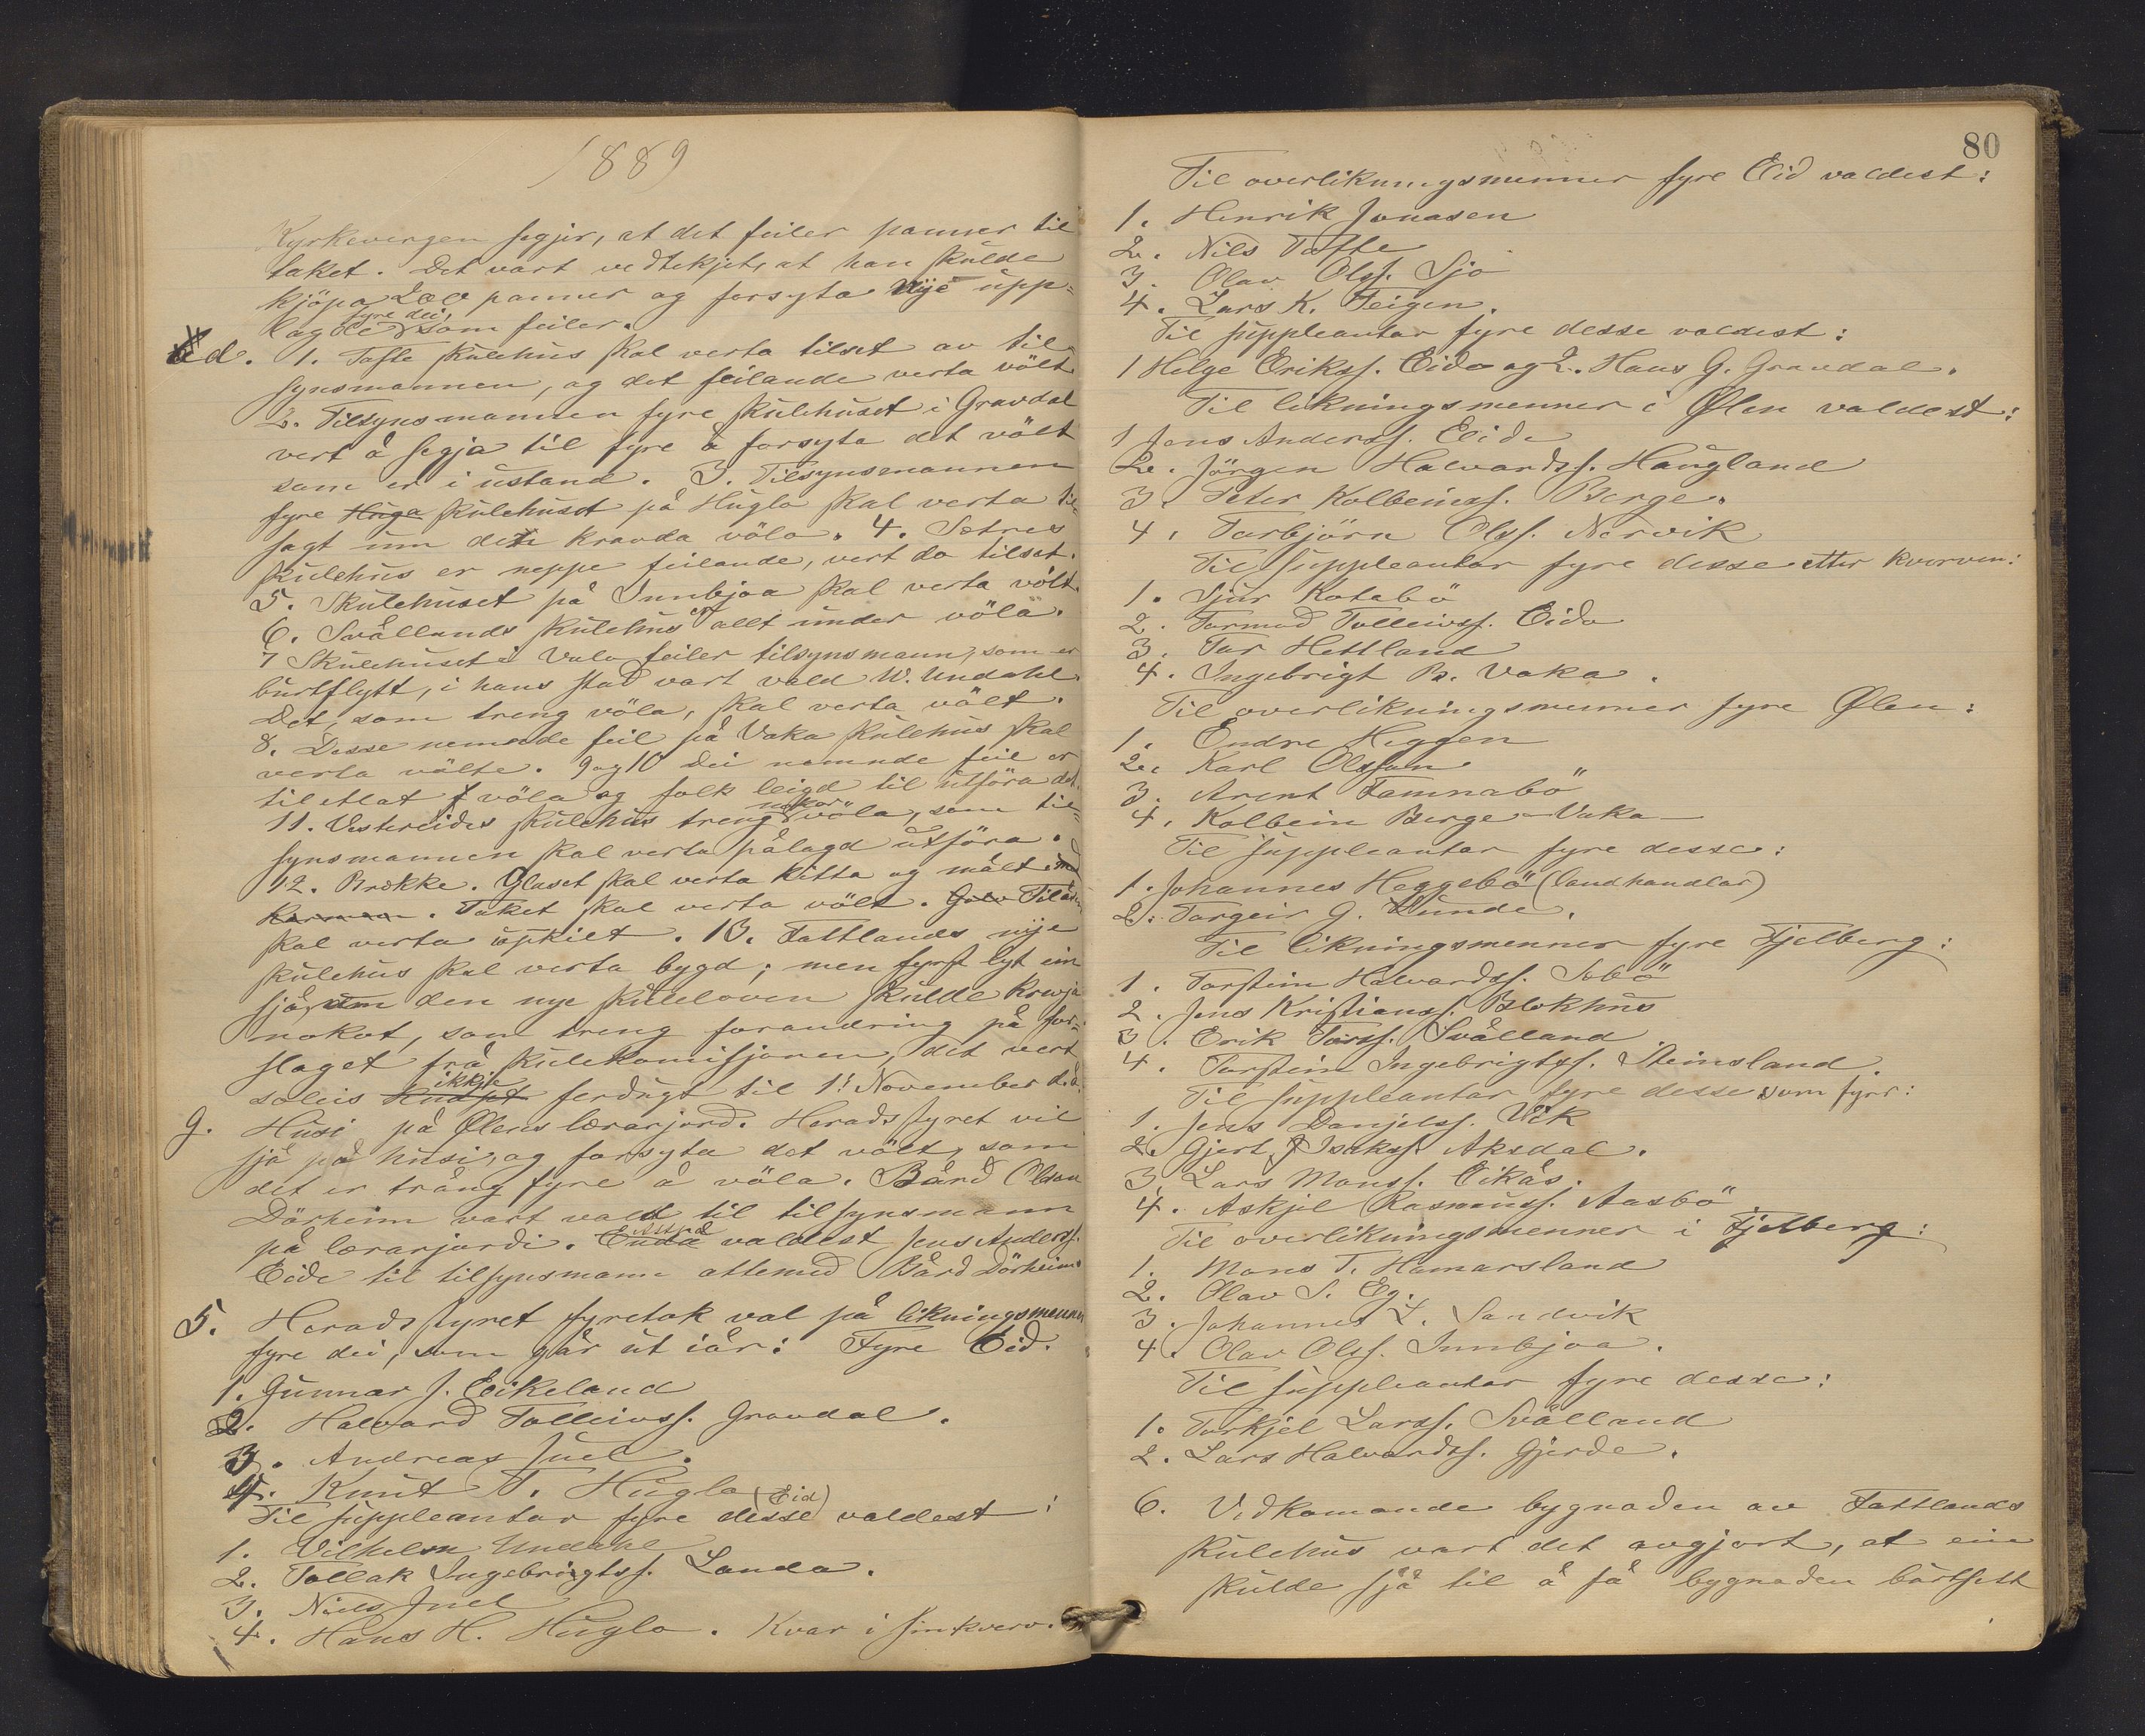 1889
Kyrkevergen segjer, at det feiler panner til
taket. Det vart vedtekjet, at han skulde
kjöpa 200 panner og forsyta nye upp=
lagde fyre dei, som feiler.
d. 1. Tofte skulehus skal verta tilset av til
synsmannen, og det feilande verta völt.
2. Tilsynsmannen fyre skulehuset i Gravdal
vert å segja til fyre å forsyta det völt
som er i ustand. 3. Tilsynsmannen
fyre Huga skulehuset på Hugla skal verta til
sagt um dette kravda völa. 4. Sætres
skulehus er neppe feilande, vert do tilset.
5. Skulehuset på Innbjoa skal verta völt.
6. Svållands skulehus er allt under völa.
7 Skulehuset i Valo feiler tilsynsmann, som er
burtflytt, i hans stad vart vald W. Undahl.
Det, som treng völa, skal verta völt.
8. Desse nemnde feil på Vaka skulehus skal
verta völte. 9 og 10 Dei nemnde feil er
tiletlat f völa og folk leigd til utföra det.
11. Vestreides skulehus treng nokor völa, som til=
synsmannen skal verta pålagd utföra.
12. Brekke. Glaset skal verta kitta og målt med
karmen. Taket skal verta völt. Golv Tilåern
skal verta uppkilt. 13. Tattlands nye
skulehus skal verta bygd; men fyrst lyt ein
sjå, um den nye skuleloven skulde krevja
nokot, som treng forandring på for=
slaget frå skulekomisjonen, det vert
soleis kudset ikkje ferdugt til 1ste November d.å.
g. Husi på Ølens lærarjord. Heradsstyret vil
sjå på husi, og forsyta det völt, som
det er trång fyre å völa. Bård Olson
Dörheim vart vald til tilsynsmann
på lærarjordi. Enda Attpå valdest Jens Anderss.
Eide til tilsynsmann attemed Bård Dörheim.
5. Heradsstyret fyretok val på likningsmenner
fyre dei, som går ut iår: Fyre Eid.
1. Gunnar J. Eikeland
2. Halvard Tolleivss. Gravdal.
3. Andreas Juel.
4. Knut T. Hugla (Eid)
Til suppleantar fyre desse valdest:
1. Vilhelm Undahl
2. Tollak Ingebrigtss. Landa.
3. Niels Juel
4. Hans H. Hugla. Kvar i sin kverv.
80
Til overlikningsmenner fyre Eid valdest:
1. Henrik Jonasen
2. Nils Tofte
3. Olav Olss. Sjo
4. Lars K. Teigen.
Til suppleantar fyre desse valdest:
1 Helge Erikss. Eide og 2. Hans G. Gravdal.
Til likningsmenner i Ølen valdest:
1 Jens Anderss. Eide
2. Jörgen Halvardss. Haugland
3. Peter Kolbeinss. Berge.
4. Torbjörn Olss. Nervik
Til suppleantar fyre desse etter kverven:
1. Sjur Kotabö
2. Tormod Tolleivss. Eide
3. Tor Hettland
4. Ingebrigt B. Vaka.
Til overlikningsmenner fyre Ølen:
1. Endre Heggen
2. Karl Olsson
3. Arent Tamnabö
4. Kolbein Berge - Vaka -
Til suppleantar fyre desse:
1. Johannes Heggebö (landhandlar)
2. Torgeir G. Lunde.
Til likningsmenner fyre Fjelberg:
1. Torstein Halvardss. Sebö
2. Jens Kristianss. Blokhus
3. Erik Torss. Svålland
4. Torstein Ingebrigtss. Steinsland.
Til suppleantar fyre desse som fyrr:
1. Jens Danjelss. Vik
2. Gjert J Isakss. Aksdal.
3. Lars Monss. Eikås.
4. Askjel Rasmuss. Aasbö
Til overlikningsmenner i Fjelberg:
1. Mons T. Hamarsland
2. Olav S. Eg.
3. Johannes L. Sandvik
4. Olav Olss. Innbjoa.
Til suppleantar fyre desse:
1. Torkjel Larss. Svålland
2. Lars Halvardss. Gjerde.
6. Vedkomande bygnaden av Tattlands
skulehus vart det avgjort, at ein
skulde sjå til å få bygnaden bortsett